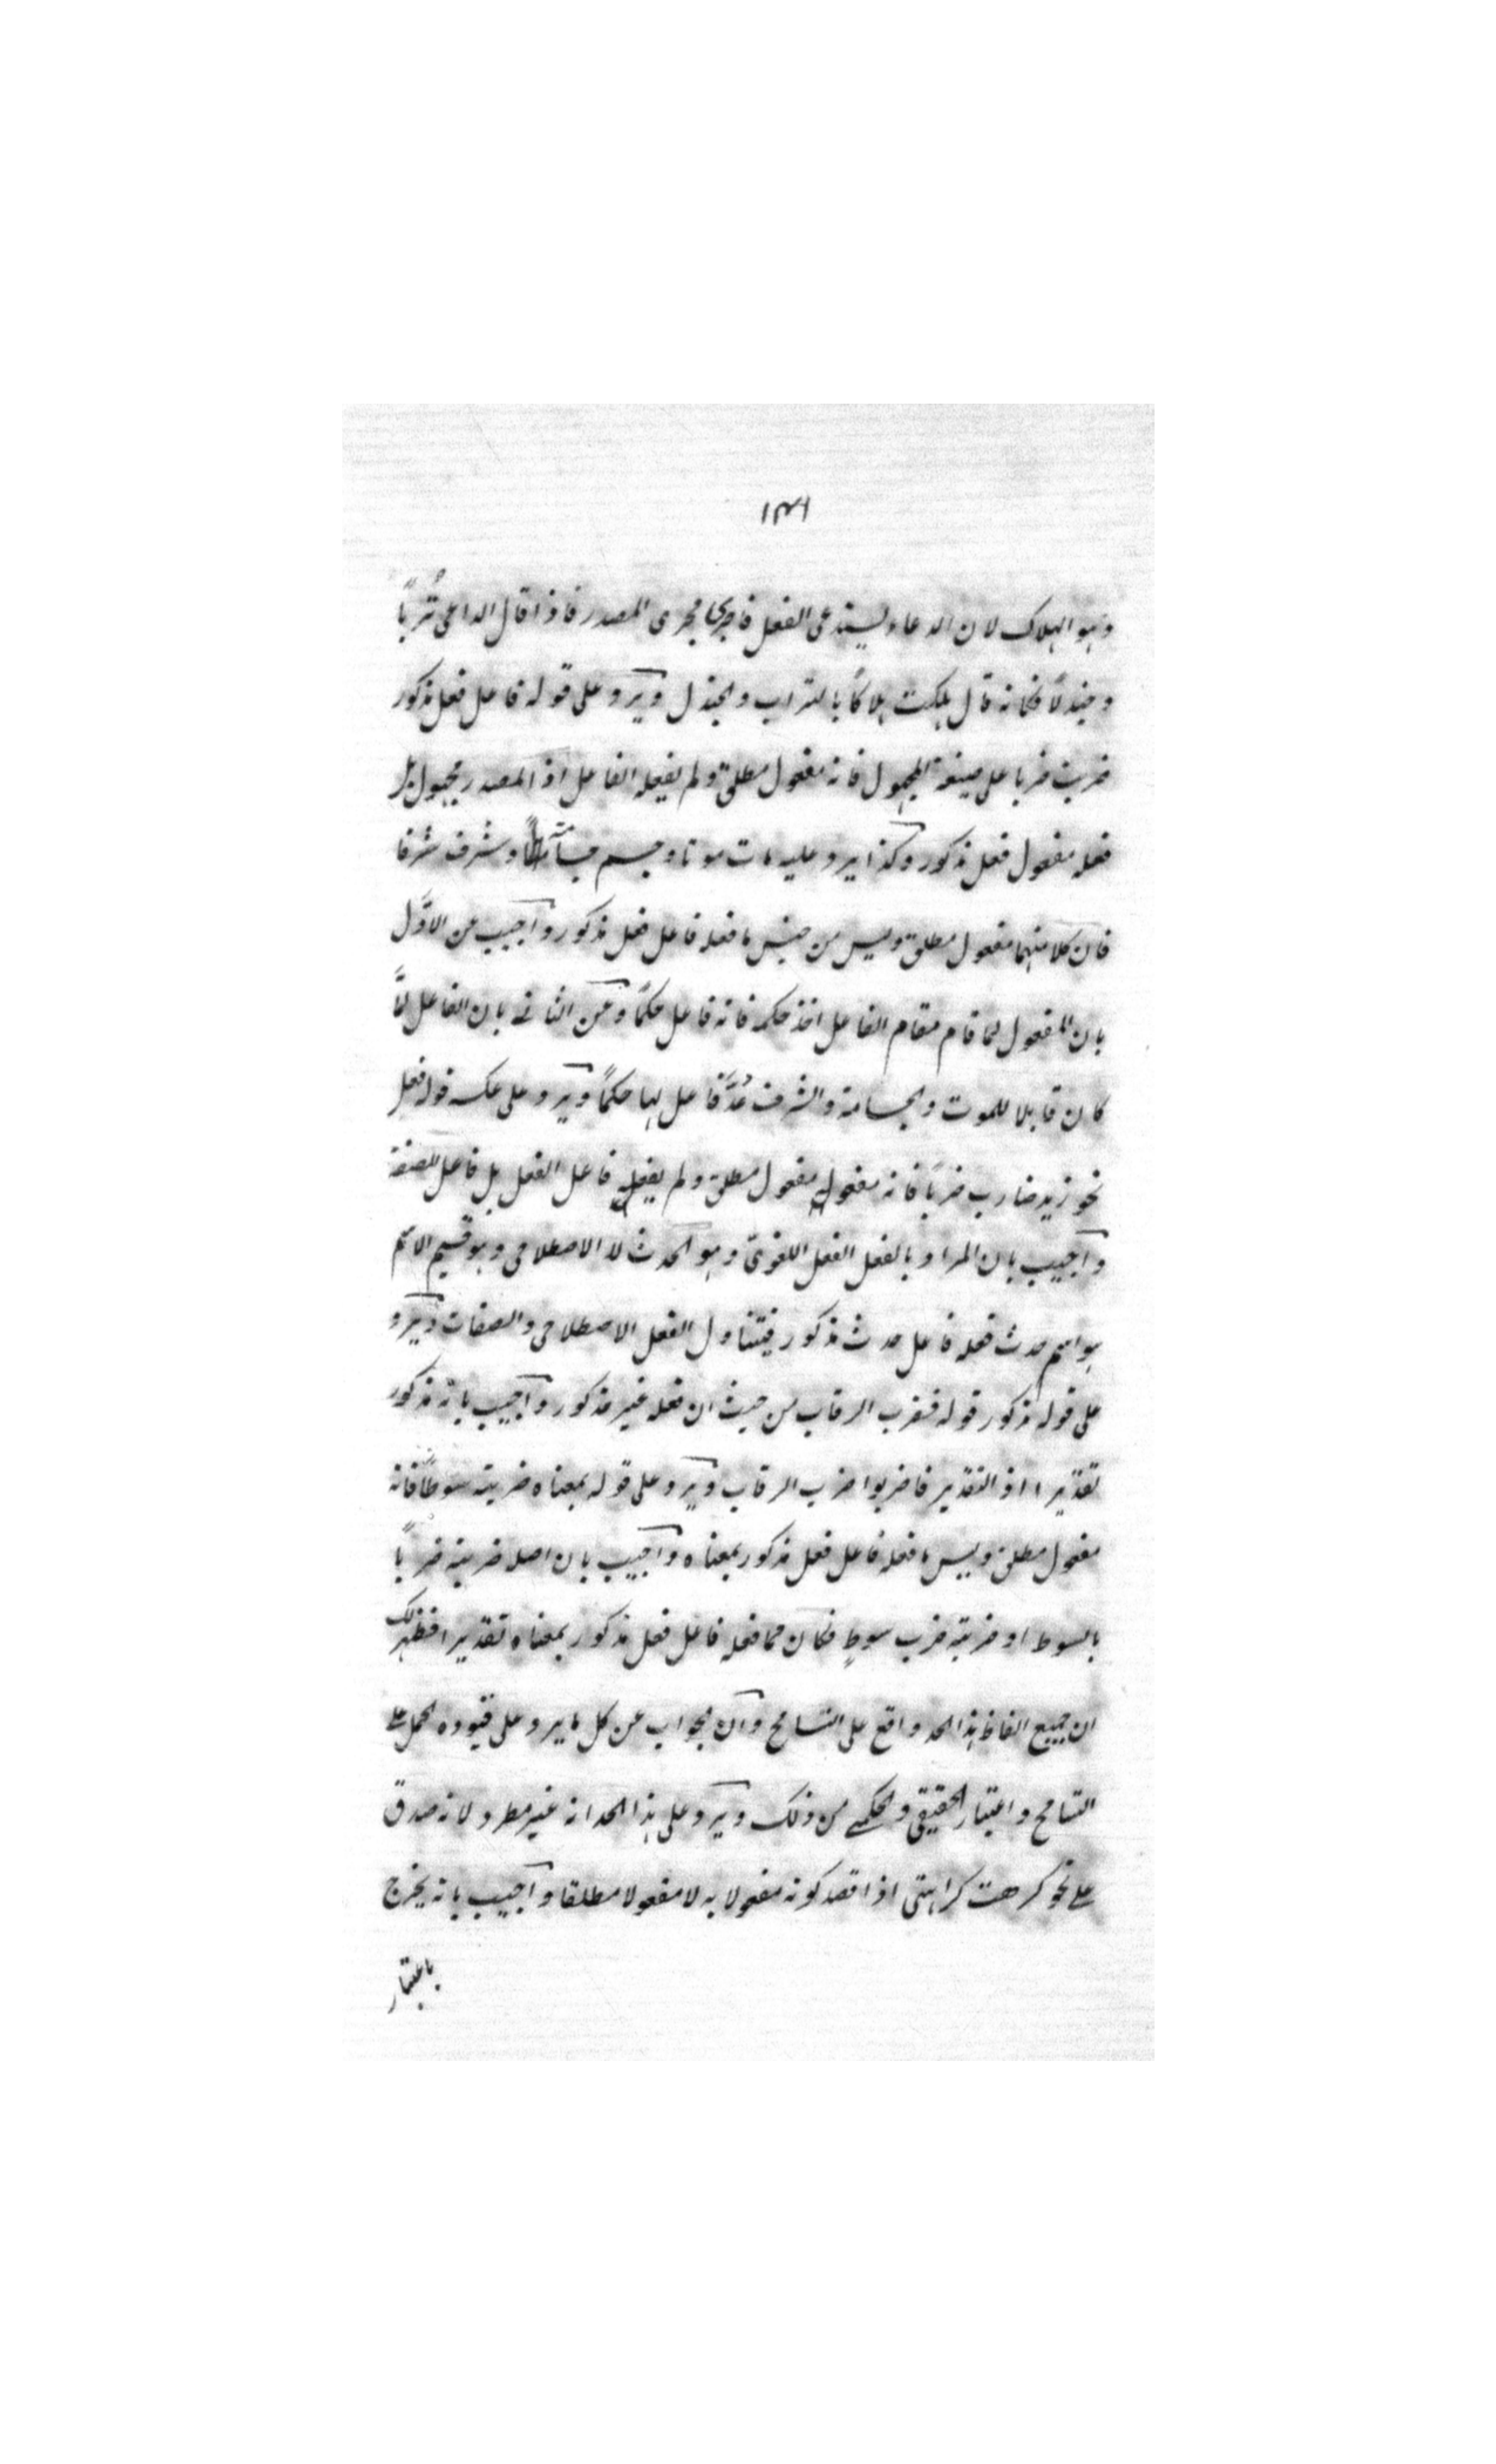 ١٣١
وهو الهلاك لان الدعاء يستدعى الفعل فاجرى مجرى المصدر فاذا قال الداعى تُرْباً
وجندلاً فكانه قال هلكت هلاكاً بالتراب والجندل ويرد على قوله فاعل فعل مذكور
ضربت ضربا على صيغة المجهول فانه مفعول مطلق ولم يفعله الفاعل اذ المصدر مجهول بل
فعله مفعول فعل مذكور وكذا يرد عليه مات موتا وجسم جسامة وشرف شرفا
فان كلا منهما مفعول مطلق وليس من جنس ما فعله فاعل فعل مذكور واجيب عن الاوّل
بان المفعول لما قام مقام الفاعل اخذ حكمه فانه فاعل حكماً وعن الثانى بان الفاعل لمّا
كان قابلا للموت والجسامة والشرف عُدَّ فاعل لها حكماً ويرد على عكسه قوله فعل
نحو زيد ضارب ضرباً فانه مفعول مفعول مطلق ولم يفعله فاعل الفعل بل فاعل الصفة
واجيب بان المراد بالفعل الفعل اللغوىّ وهو الحدث لا الاصطلاحى وهو قسيم الاسم
هو اسم حدث فعله فاعل حدث مذكور فيتناول الفعل الاصطلاحى والصفات ويرد
على قوله مذكور قوله فضرب الرقاب من حيث ان فعله غير مذكور واجيب بانه مذكور
تقديرا اذ التقدير فاضربوا ضرب الرقاب ويرد على قوله بمعناه ضربته سوطاً فانه
مفعول مطلق وليس ما فعله فاعل فعل مذكور بمعناه واجيب بان اصله ضربته ضرباً
بالسوط او ضربته ضرب سوطٍ فكان مما فعله فاعل فعل مذكور بمعناه تقديرا فظهر لك
ان جميع الفاظ هذا الحد واقع على التسامح وان الجواب عن كل ما يرد على قيوده الحمل على
التسامح واعتبار الحقيقى والحكمى من ذلك ويرد على هذا الحد انه غير مطرد لانه صدق
على نحو كرهت كراهتى اذا قصد كونه مفعولا به لا مفعولا مطلقا واجيب بانه يخرج
باعتبار